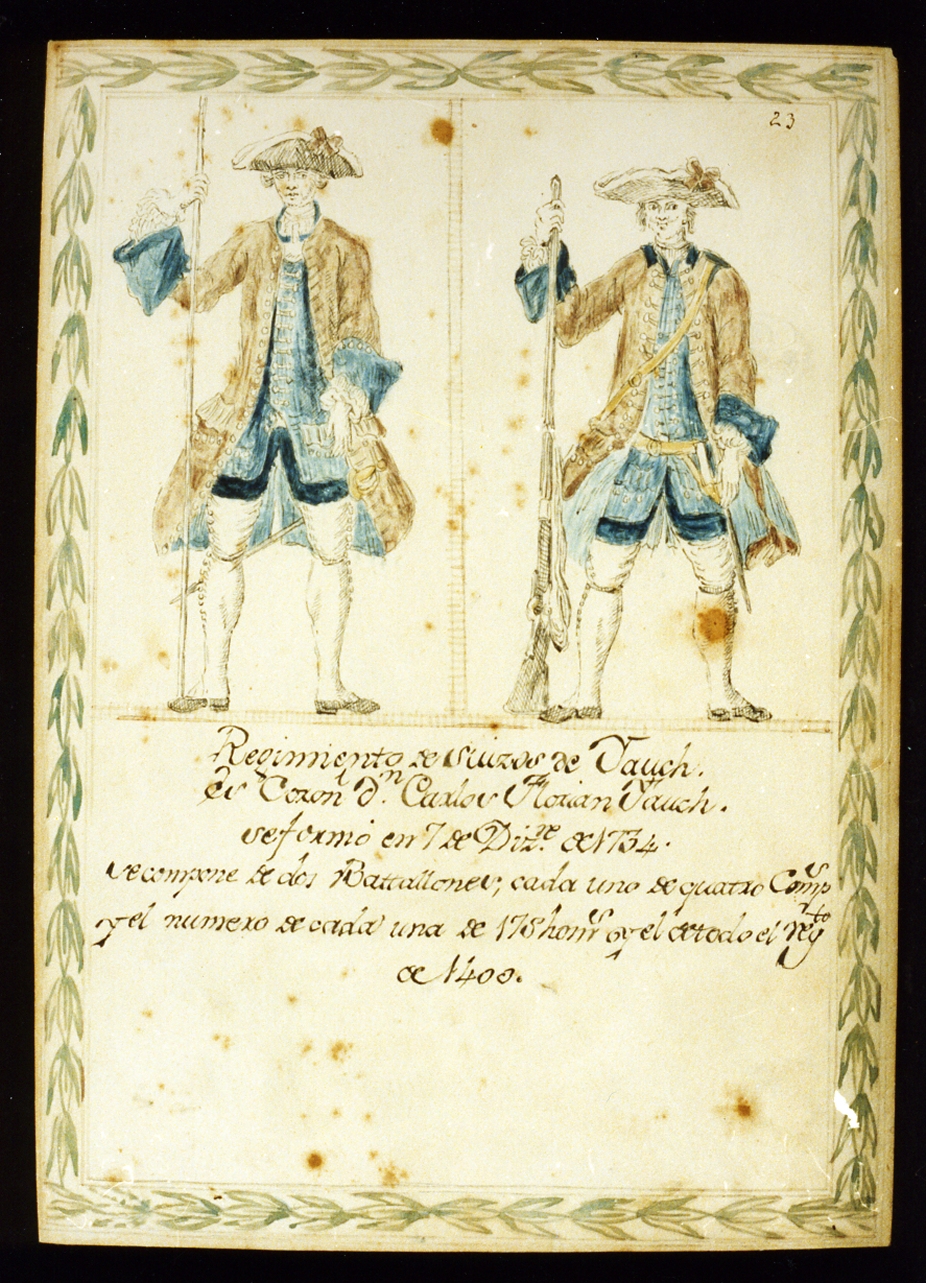 23
Regimiento de suizos de Jauch.
Es Coron.l d.n Carlos Florian Jauch.
se formó en 7 de Diz.re de 1734.
se compone de dos Battallones, cada uno de quatro Comp.s
y el numero de cada una de 175 hom.s y el de todo el Reg.to
de 1400.